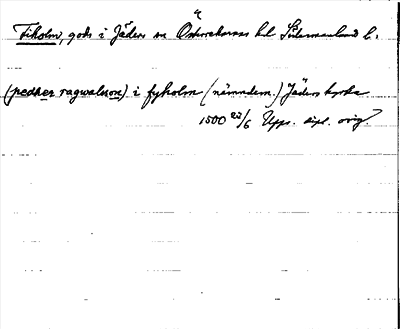 Fiholm, gods i Jäders sn Österrekarne hd Södermanland l.
(pedher ragwalson) i fyholm (nämndem.) Jäders kyrka
1500 22/6 Upps. dipl. orig.